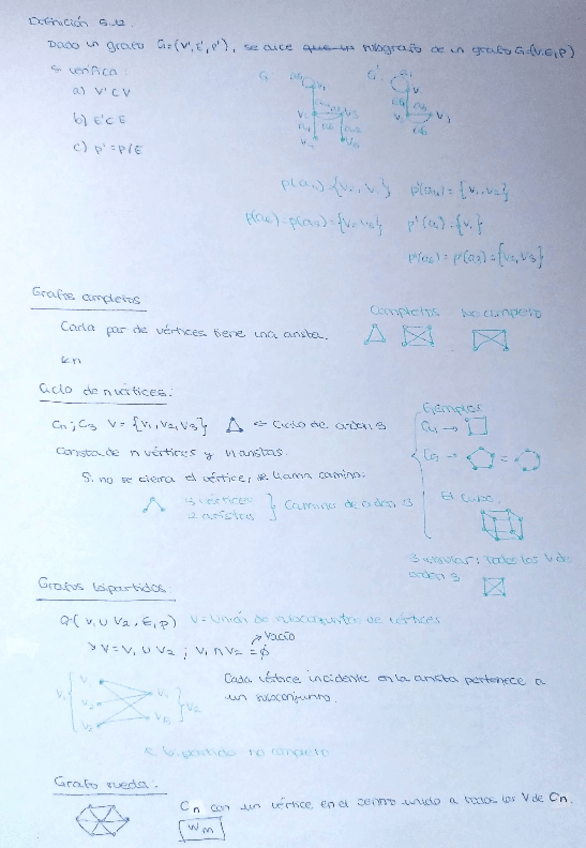 Definición 5.12.
Dado un grafo G'=(V',E',p'), se dice subgrafo de un grafo G=(V,E,p)
si verifica:
a) V'⊂V
b) E'⊂E
c) p'=p/E
G G'
p'(a1)={v1}
p'(a2)=p'(a3)={v2,v3}
Grafos completos
Cada par de vértices tiene una arista.
Kn
Completos No completo
Ciclo de n vértices:
Cn; C3 V={v1,v2,v3} ← Ciclo de orden 3
Consta de n vértices y n aristas.
Si no se cierra el vértice, se llama camino.
3 vértices
2 aristas } Camino de orden 3
Ejemplos
C4 →
C5 → =
El cubo
3 regular: Todos los V de
orden 3
Grafos bipartidos:
G(V1 ∪ V2, E, p) V=Unión de subconjuntos de vértices
V=V1 ∪ V2 ; V1 ∩ V2 = ∅
vacío
Cada vértice incidente en la arista pertenece a
un subconjunto.
bipartido no completo
Grafo rueda:
Cn con un vértice en el centro unido a todos los V de Cn.
Wn